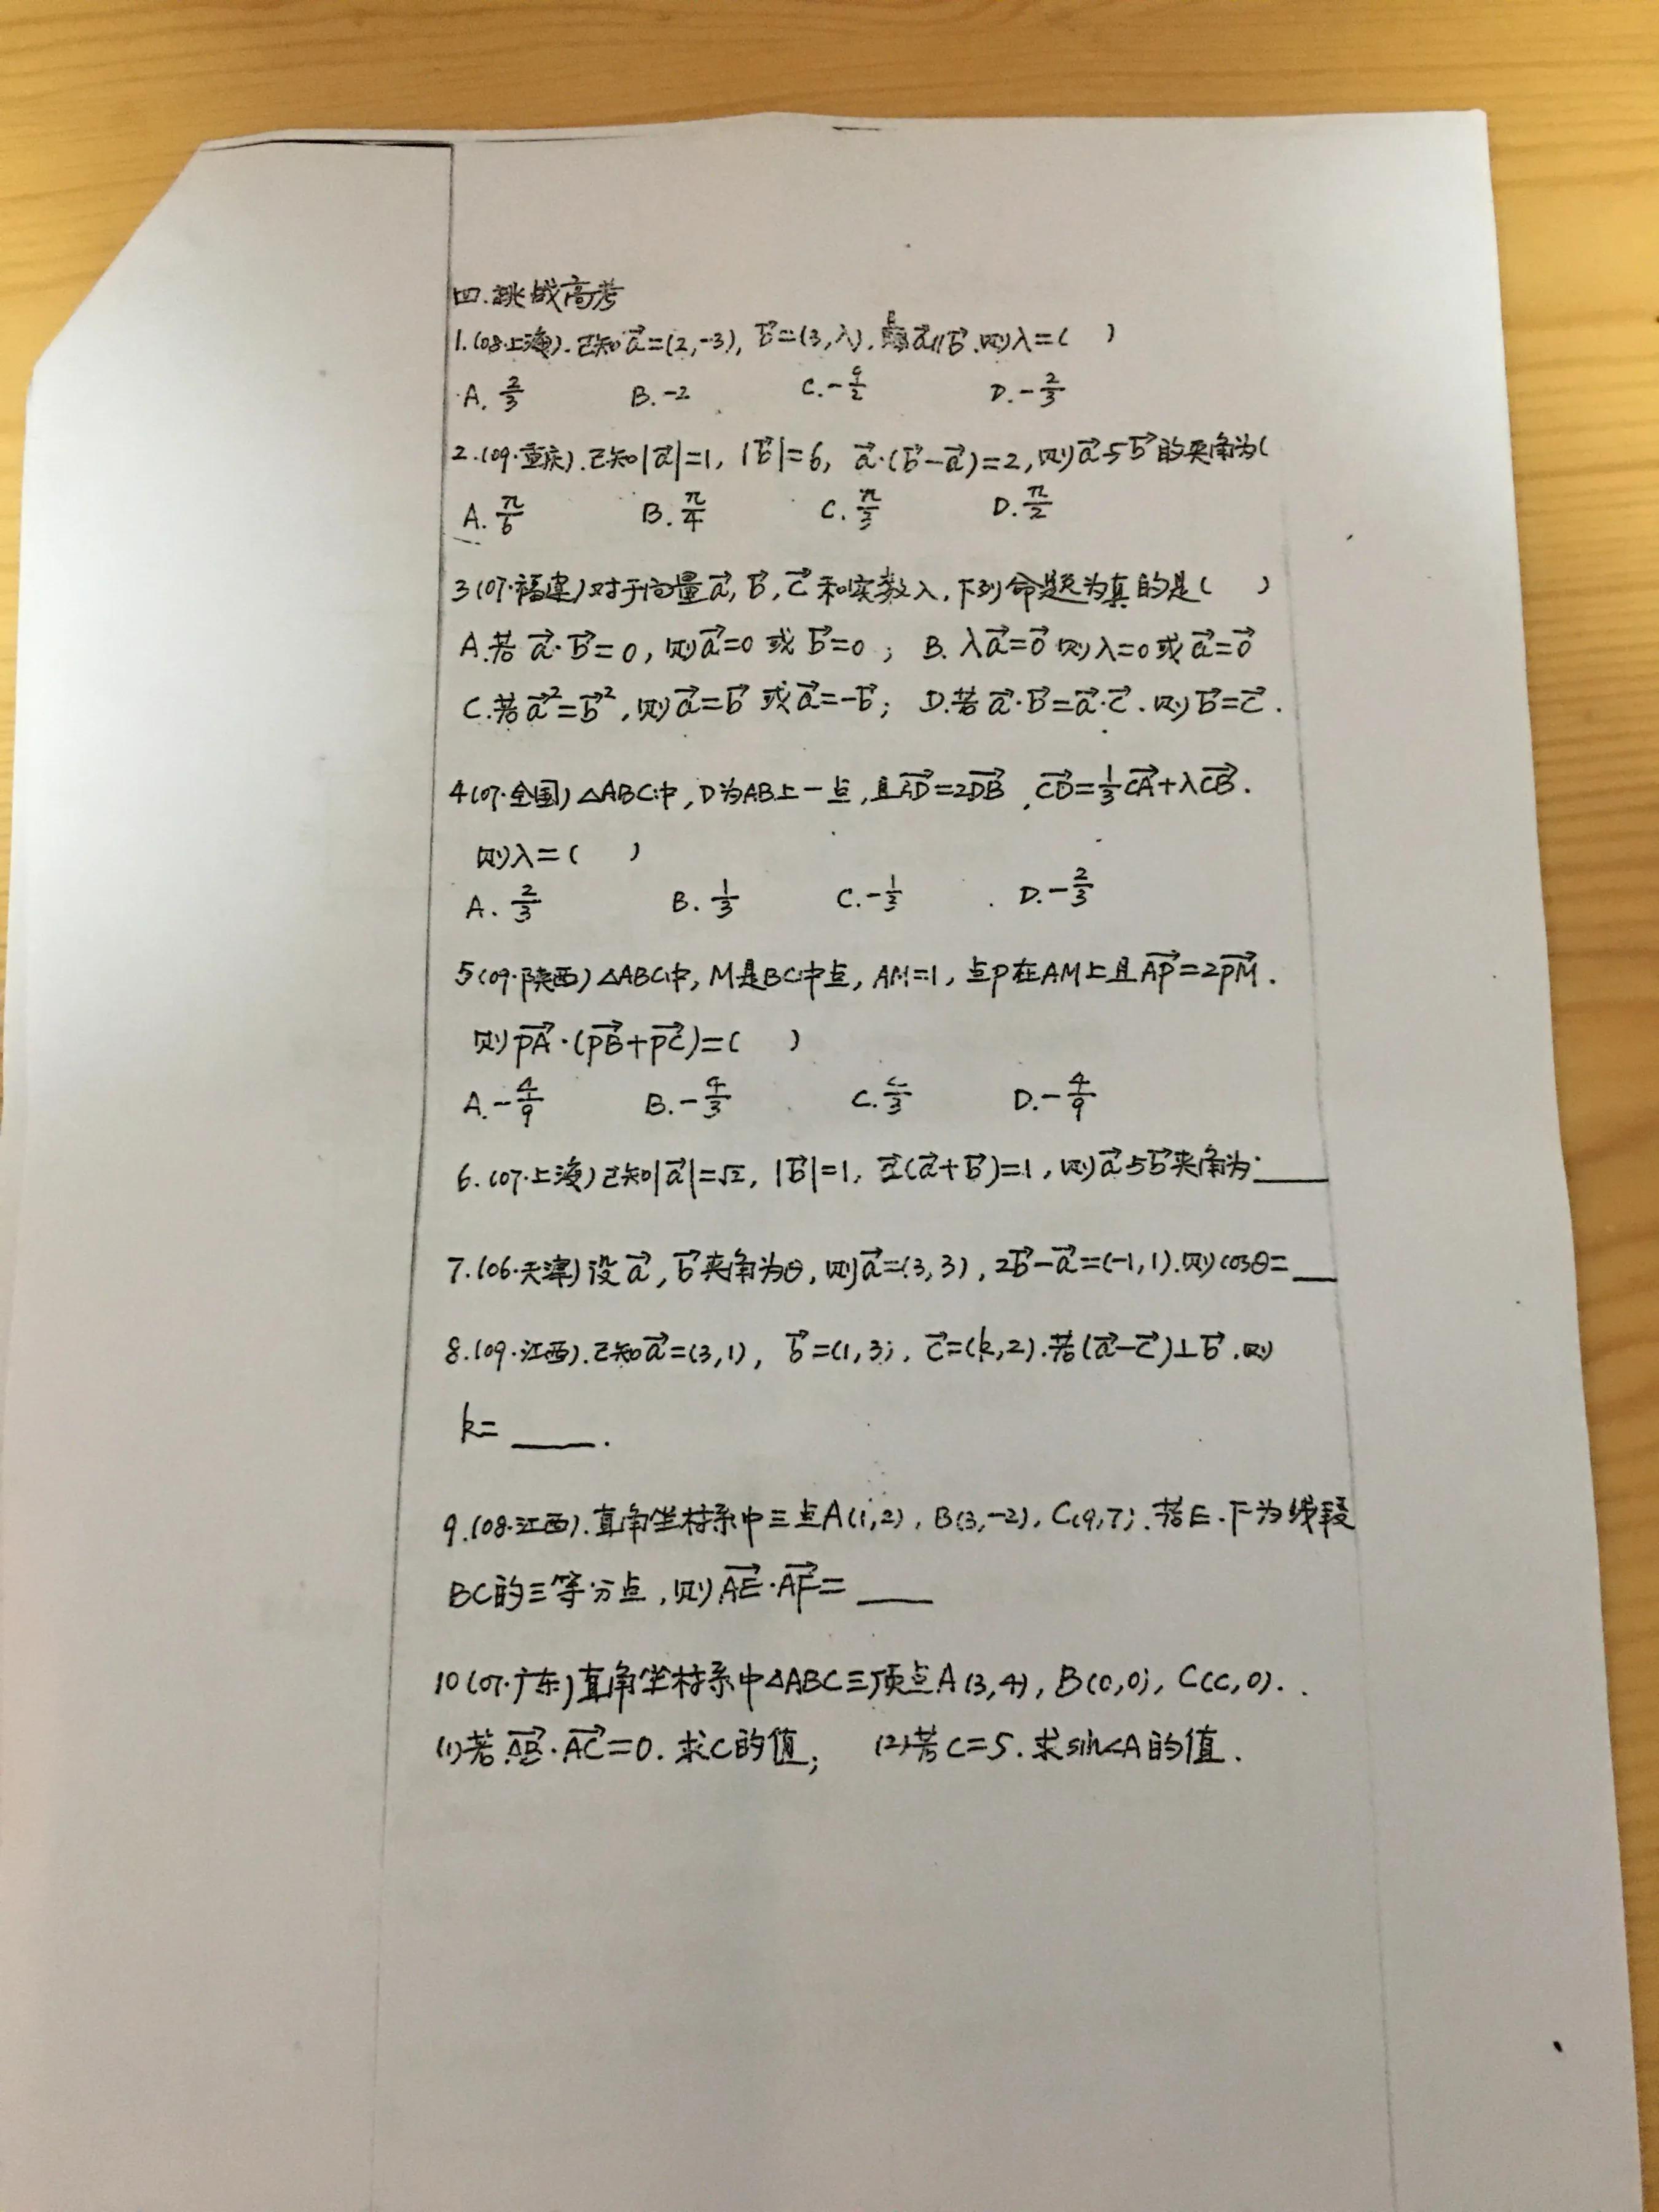 四.挑战高考
1.(08·上海).已知a⃗=(2,-3), b⃗=(3,λ),且a⃗∥b⃗.则λ=( )
A. 2/3 B.-2 C.-9/2 D.-2/3
2.(09·重庆).已知|a⃗|=1, |b⃗|=6, a⃗·(b⃗-a⃗)=2,则a⃗与b⃗的夹角为(
A. π/6 B. π/4 C. π/3 D. π/2
3(07·福建)对于向量a⃗, b⃗, c⃗和实数λ,下列命题为真的是( )
A.若a⃗·b⃗=0,则a⃗=0或b⃗=0; B. λa⃗=0⃗则λ=0或a⃗=0⃗
C.若a⃗²=b⃗²,则a⃗=b⃗或a⃗=-b⃗; D.若a⃗·b⃗=a⃗·c⃗.则b⃗=c⃗.
4(07·全国)△ABC中,D为AB上一点,且AD⃗=2DB⃗,CD⃗=1/3CA⃗+λCB⃗.
则λ=( )
A. 2/3 B. 1/3 C.-1/3 D.-2/3
5(09·陕西)△ABC中,M是BC中点,AM=1,点P在AM上且AP⃗=2PM⃗.
则PA⃗·(PB⃗+PC⃗)=( )
A.-4/9 B.-4/3 C. /3 D.-4/9
6.(07·上海)已知|a⃗|=√2, |b⃗|=1, a⃗(a⃗+b⃗)=1,则a⃗与b⃗夹角为:____
7.(06·天津)设a⃗, b⃗夹角为θ,则a⃗=(3,3),2b⃗-a⃗=(-1,1).则cosθ=___
8.(09·江西).已知a⃗=(3,1), b⃗=(1,3), c⃗=(k,2).若(a⃗-c⃗)⊥b⃗.则
k=____.
9.(08·江西).直角坐标系中三点A(1,2), B(3,-2), C(9,7).若E.F为线段
BC的三等分点,则AE⃗·AF⃗=____
10(07·广东)直角坐标系中△ABC三顶点A(3,4), B(0,0), C(c,0).
(1)若AB⃗·AC⃗=0.求c的值; (2)若c=5.求sin∠A的值.